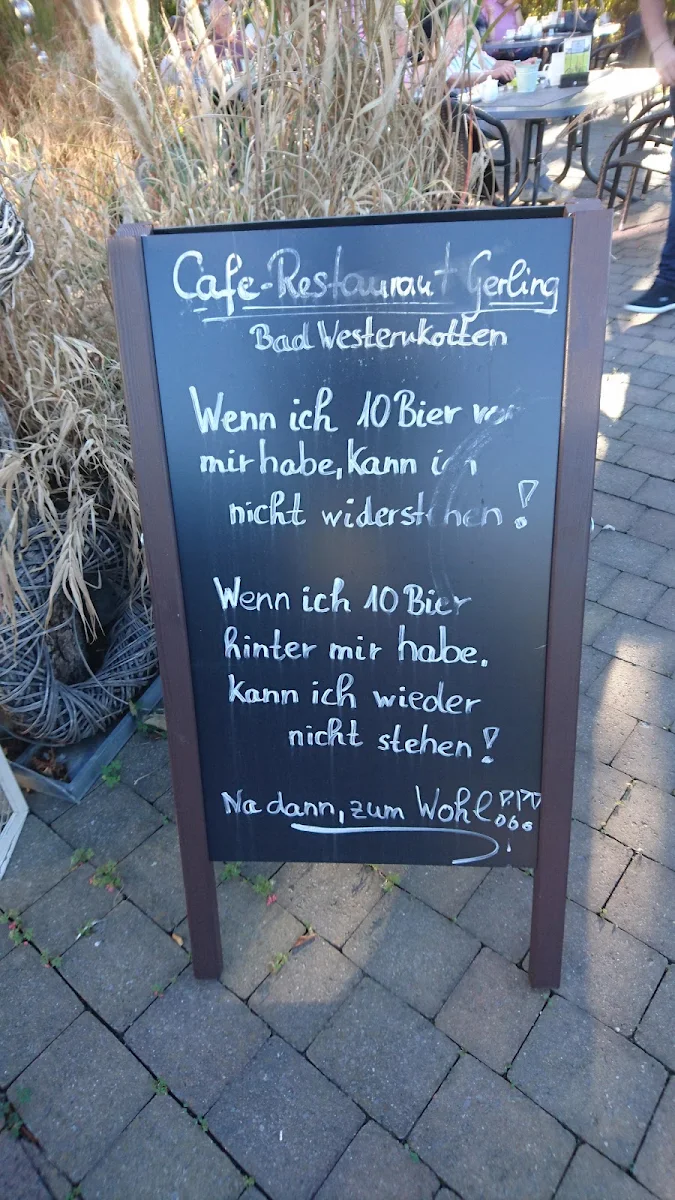 Cafe-Restaurant Gerling
Bad Westernkotten
Wenn ich 10 Bier vor
mir habe, kann ich
nicht widerstehen!
Wenn ich 10 Bier
hinter mir habe.
kann ich wieder
nicht stehen!
Na dann, zum Wohl!!!